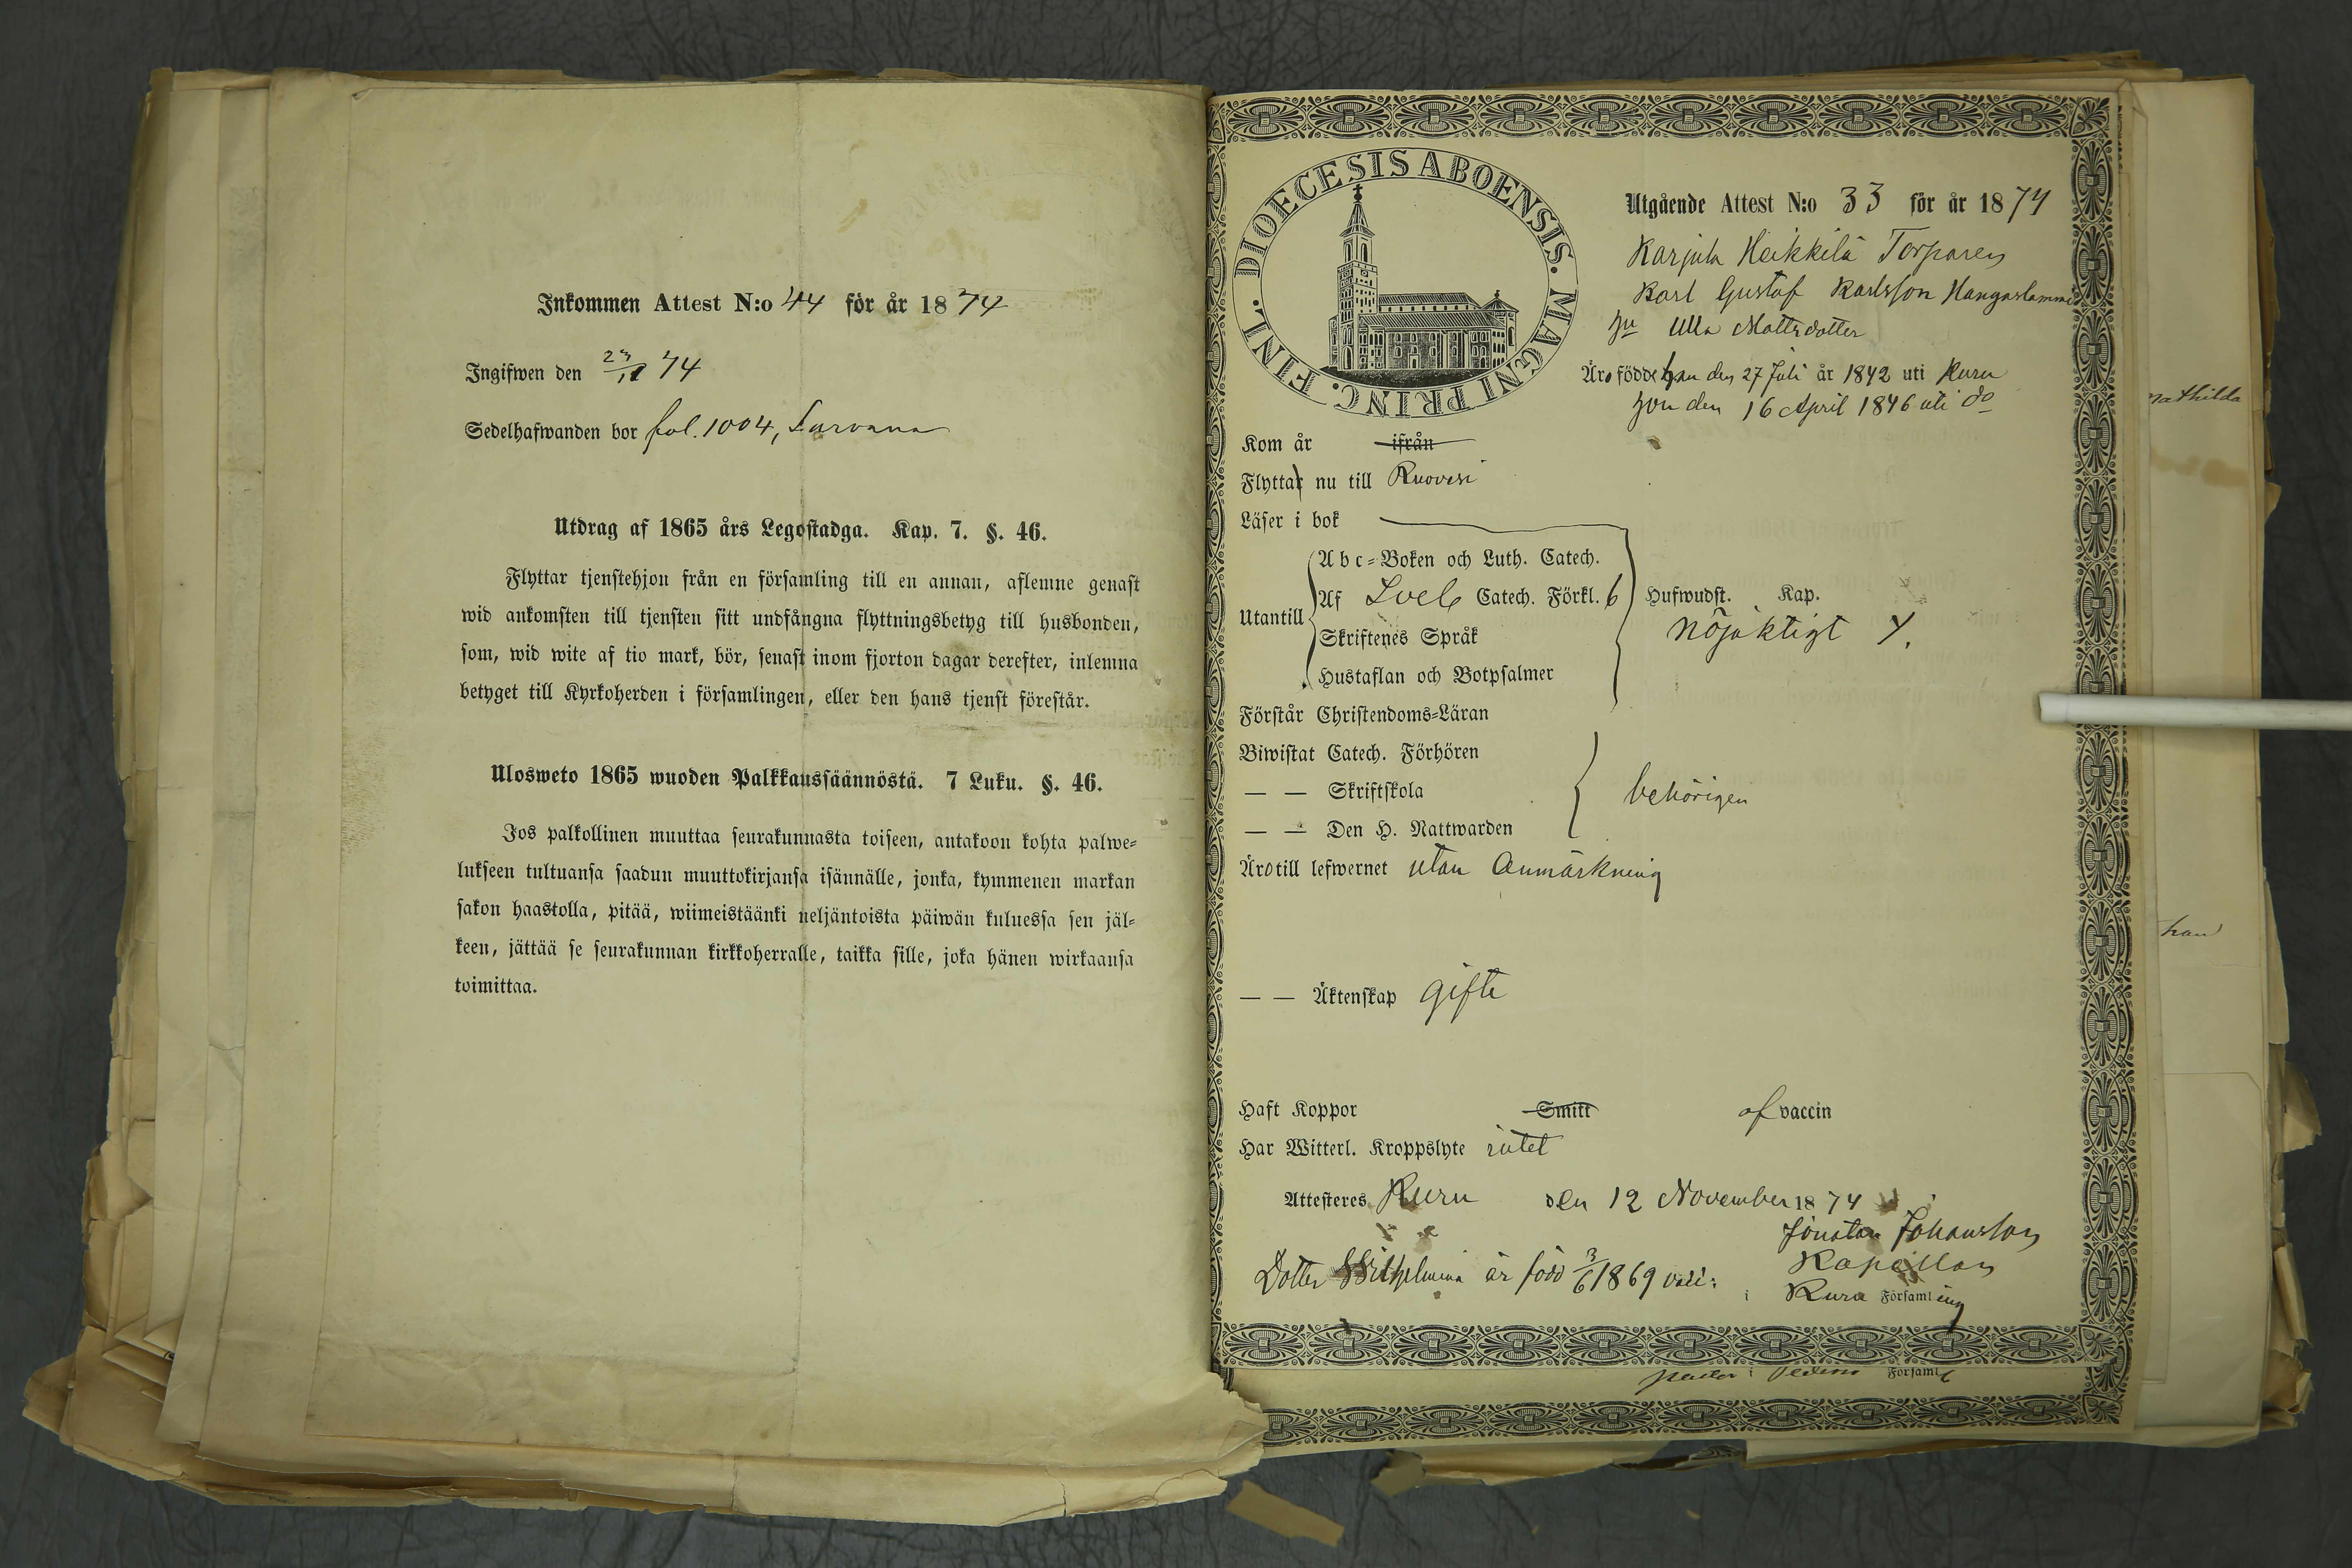 Inkommen Attest N:o 44 för år 1874
Ingifwen den 23/11 74
Sedelhafwanden bor fol. 1004,
Utdrag af 1865 års Legostadga. Kap. 7. §. 46.
Flyttar tjenstehjon från en församling till en annan, aflemne genast
wid ankomsten till tjensten sitt undfångna flyttningsbetyg till husbonden,
som, wid wite af tio mark, bör, senast inom fjorton dagar derefter, inlemna
betyget till Kyrkoherden i församlingen, eller den hans tjenst förestår.
Ulosweto 1865 wuoden Palkkaussäännöstä. 7 Luku. §. 46.
Jos palkollinen muuttaa seurakunnasta toiseen, antakoon kohta palwe-
lukseen tultuansa saadun muuttokirjansa isännälle, jonka, kymmenen markan
sakon haastolla, pitää, wiimeistäänki neljäntoista päiwän kuluessa sen jäl-
keen, jättää se seurakunnan kirkkoherralle, taikka sille, joka hänen wirkaansa
toimittaa.
DIOECESIS ABOENSIS. MAGNI PRINC. FINL.
Utgående Attest N:o 33 för år 1874
Karjula Heikkilä Torparen
Karl Gustaf Karlsson Hangaslammi
hu Ulla Mattsdotter
Äro födde han den 27 Juli år 1842 uti Kuru
hon den 16 April 1846 uti do
Kom år ifrån
Flytta nu till Ruovesi
Läser i bok
Utantill
Abc-Boken och Luth. Catech.
Af Sveb Catech. Förkl. 6 Hufwudst. Kap.
Skriftenes Språk nöjaktigt
Hustaflan och Botpsalmer
Förstår Christendoms-Läran
Biwistat Catech. Förhören
— — Skriftskola behörigen
— — Den H. Nattwarden
Äro till lefwernet utan anmärkning
— — Äktenskap gifte
Haft Koppor Smitt af vaccin
Har Witterl. Kroppslyte intet
Attesteres Kuru den 12 November 1874
Jonatan Johansson
Kapellan
i Kuru Församling
Dotter Wilhelmina är född 3/6 1869
i Församl
mathilda
han